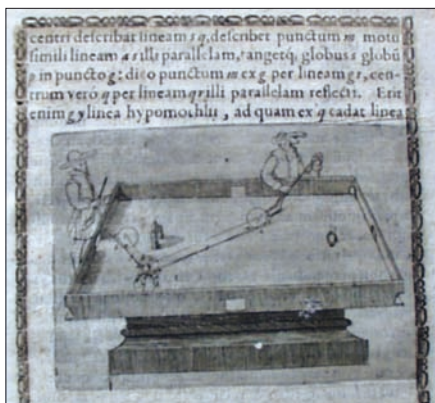 centri deſcribat lineam s q, deſcribet punctum m, motu
ſimili lineam a r illi parallelam, tangetq; globus s globū
p in puncto g: dico punctum m ex g per lineam g r, cen-
trum verò q per lineam q r illi parallelam reflecti. Erit
enim g y linea hypomochlii, ad quam ex q cadat linea